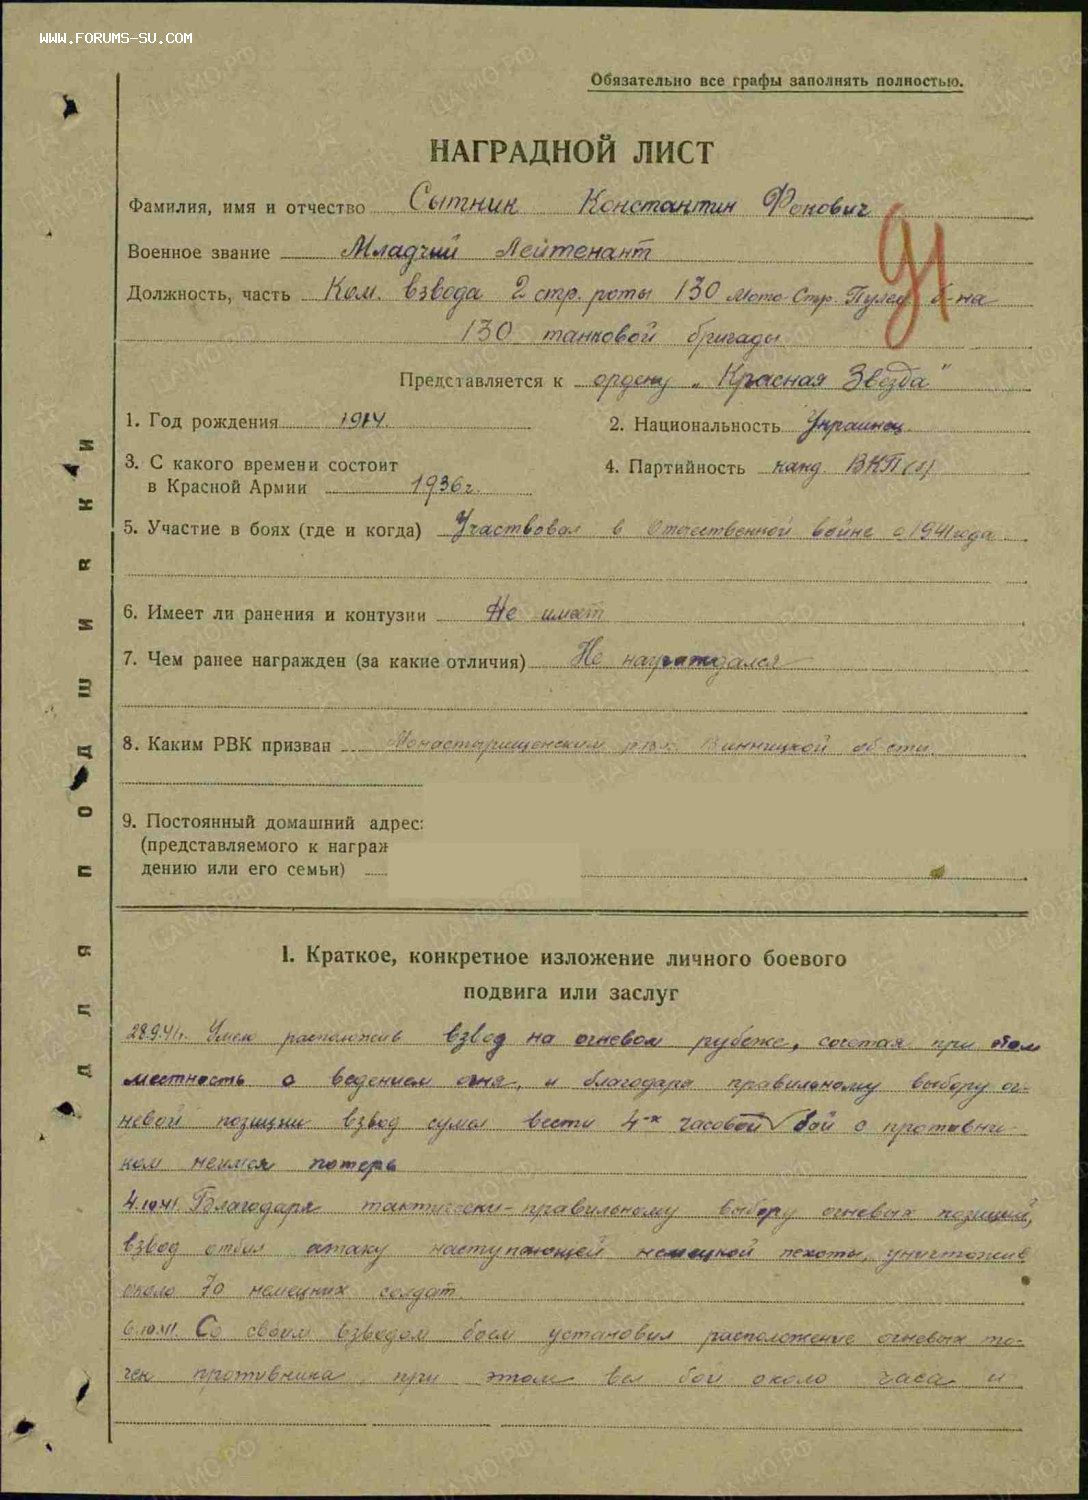 WWW.FORUMS-SU.COM
Обязательно все графы заполнять полностью.
НАГРАДНОЙ ЛИСТ
Фамилия, имя и отчество Сытник Константин Фокович
91
Военное звание Младший Лейтенант
Должность, часть Ком. взвода 2 стр. роты 130 Мото-Стр. Пулем б-на
130 танковой бригады
Представляется к ордену „Красная Звезда"
1. Год рождения 1914
2. Национальность Украинец
3. С какого времени состоит
в Красной Армии 1936г.
4. Партийность канд. ВКП(б)
5. Участие в боях (где и когда) Участвовал в Отечественной войне с 1941 года
6. Имеет ли ранения и контузии Не имеет
7. Чем ранее награжден (за какие отличия) Не награждался
8. Каким РВК призван Монастырищенским рвк. Винницкой об-сти.
9. Постоянный домашний адрес:
(представляемого к награж
дению или его семьи)
I. Краткое, конкретное изложение личного боевого
подвига или заслуг
28.9.41г. Умело расположив взвод на огневом рубеже, сочетая при этом
местность с ведением огня, и благодаря правильному выбору ог-
невой позиции взвод сумел вести 4-х часовой бой с противни-
ком неимея потерь
4.10.41. Благодаря тактически-правильному выбору огневых позиций,
взвод отбил атаку наступающей немецкой пехоты, уничтожив
около 70 немецких солдат.
6.10.41. Со своим взводом боем установил расположение огневых то-
чек противника, при этом вел бой около часа и
ДЛЯ ПОДШИВКИ
ЦАМО РФ